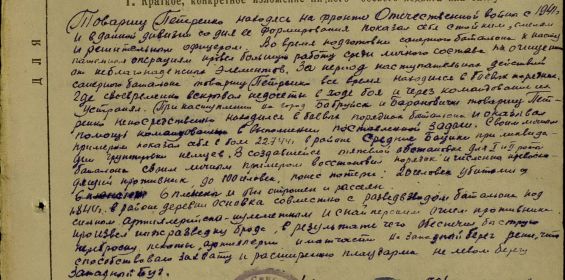 1. Краткое, конкретное изложение личного боевого подвига или заслуг
ДЛЯ
Товарищ Петренко находясь на фронте Отечественной войны с 1941г.
и в данной дивизии со дня ее формирования показал себя стойким, смелым
и решительным офицером. Во время подготовки саперного батальона к насту
пательным операциям провел большую работу среди личного состава по очищению
от неблагонадежных элементов. За период наступательных действий
саперного батальона товарищ Петренко все время находился в боевых порядках.
Где своевременно вскрывал недочеты в ходе боя и через командование их
устранял. При наступлении на город Бобруйск и Барановичи товарищ Пет-
ренко непосредственно находился в боевых порядках батальона и оказывал
помощь командованию в выполнении поставленной задачи. Своим личным
примером показал себя в бою 22.7.44г. в районе Средние при ликвида-
ции группировки немцев. В создавшейся тяжелой обстановке для
батальона своим личным примером восстановил порядок и численно превосхо-
дящий противник до 100 человек, понес потери: 20 человек убитыми и
6 пленены и был отброшен и рассеян.
в районе деревни Основка совместно с разведвзводом батальона под
сильным артиллерийско-пулеметным и снайперским огнем противника
произвел инж.разведку брода, в результате чего обеспечил быструю
переброску пехоты, артиллерии и матчасти на западный берег реки, что
способствовало захвату и расширению плацдарма на левом берегу
Западный Буг.